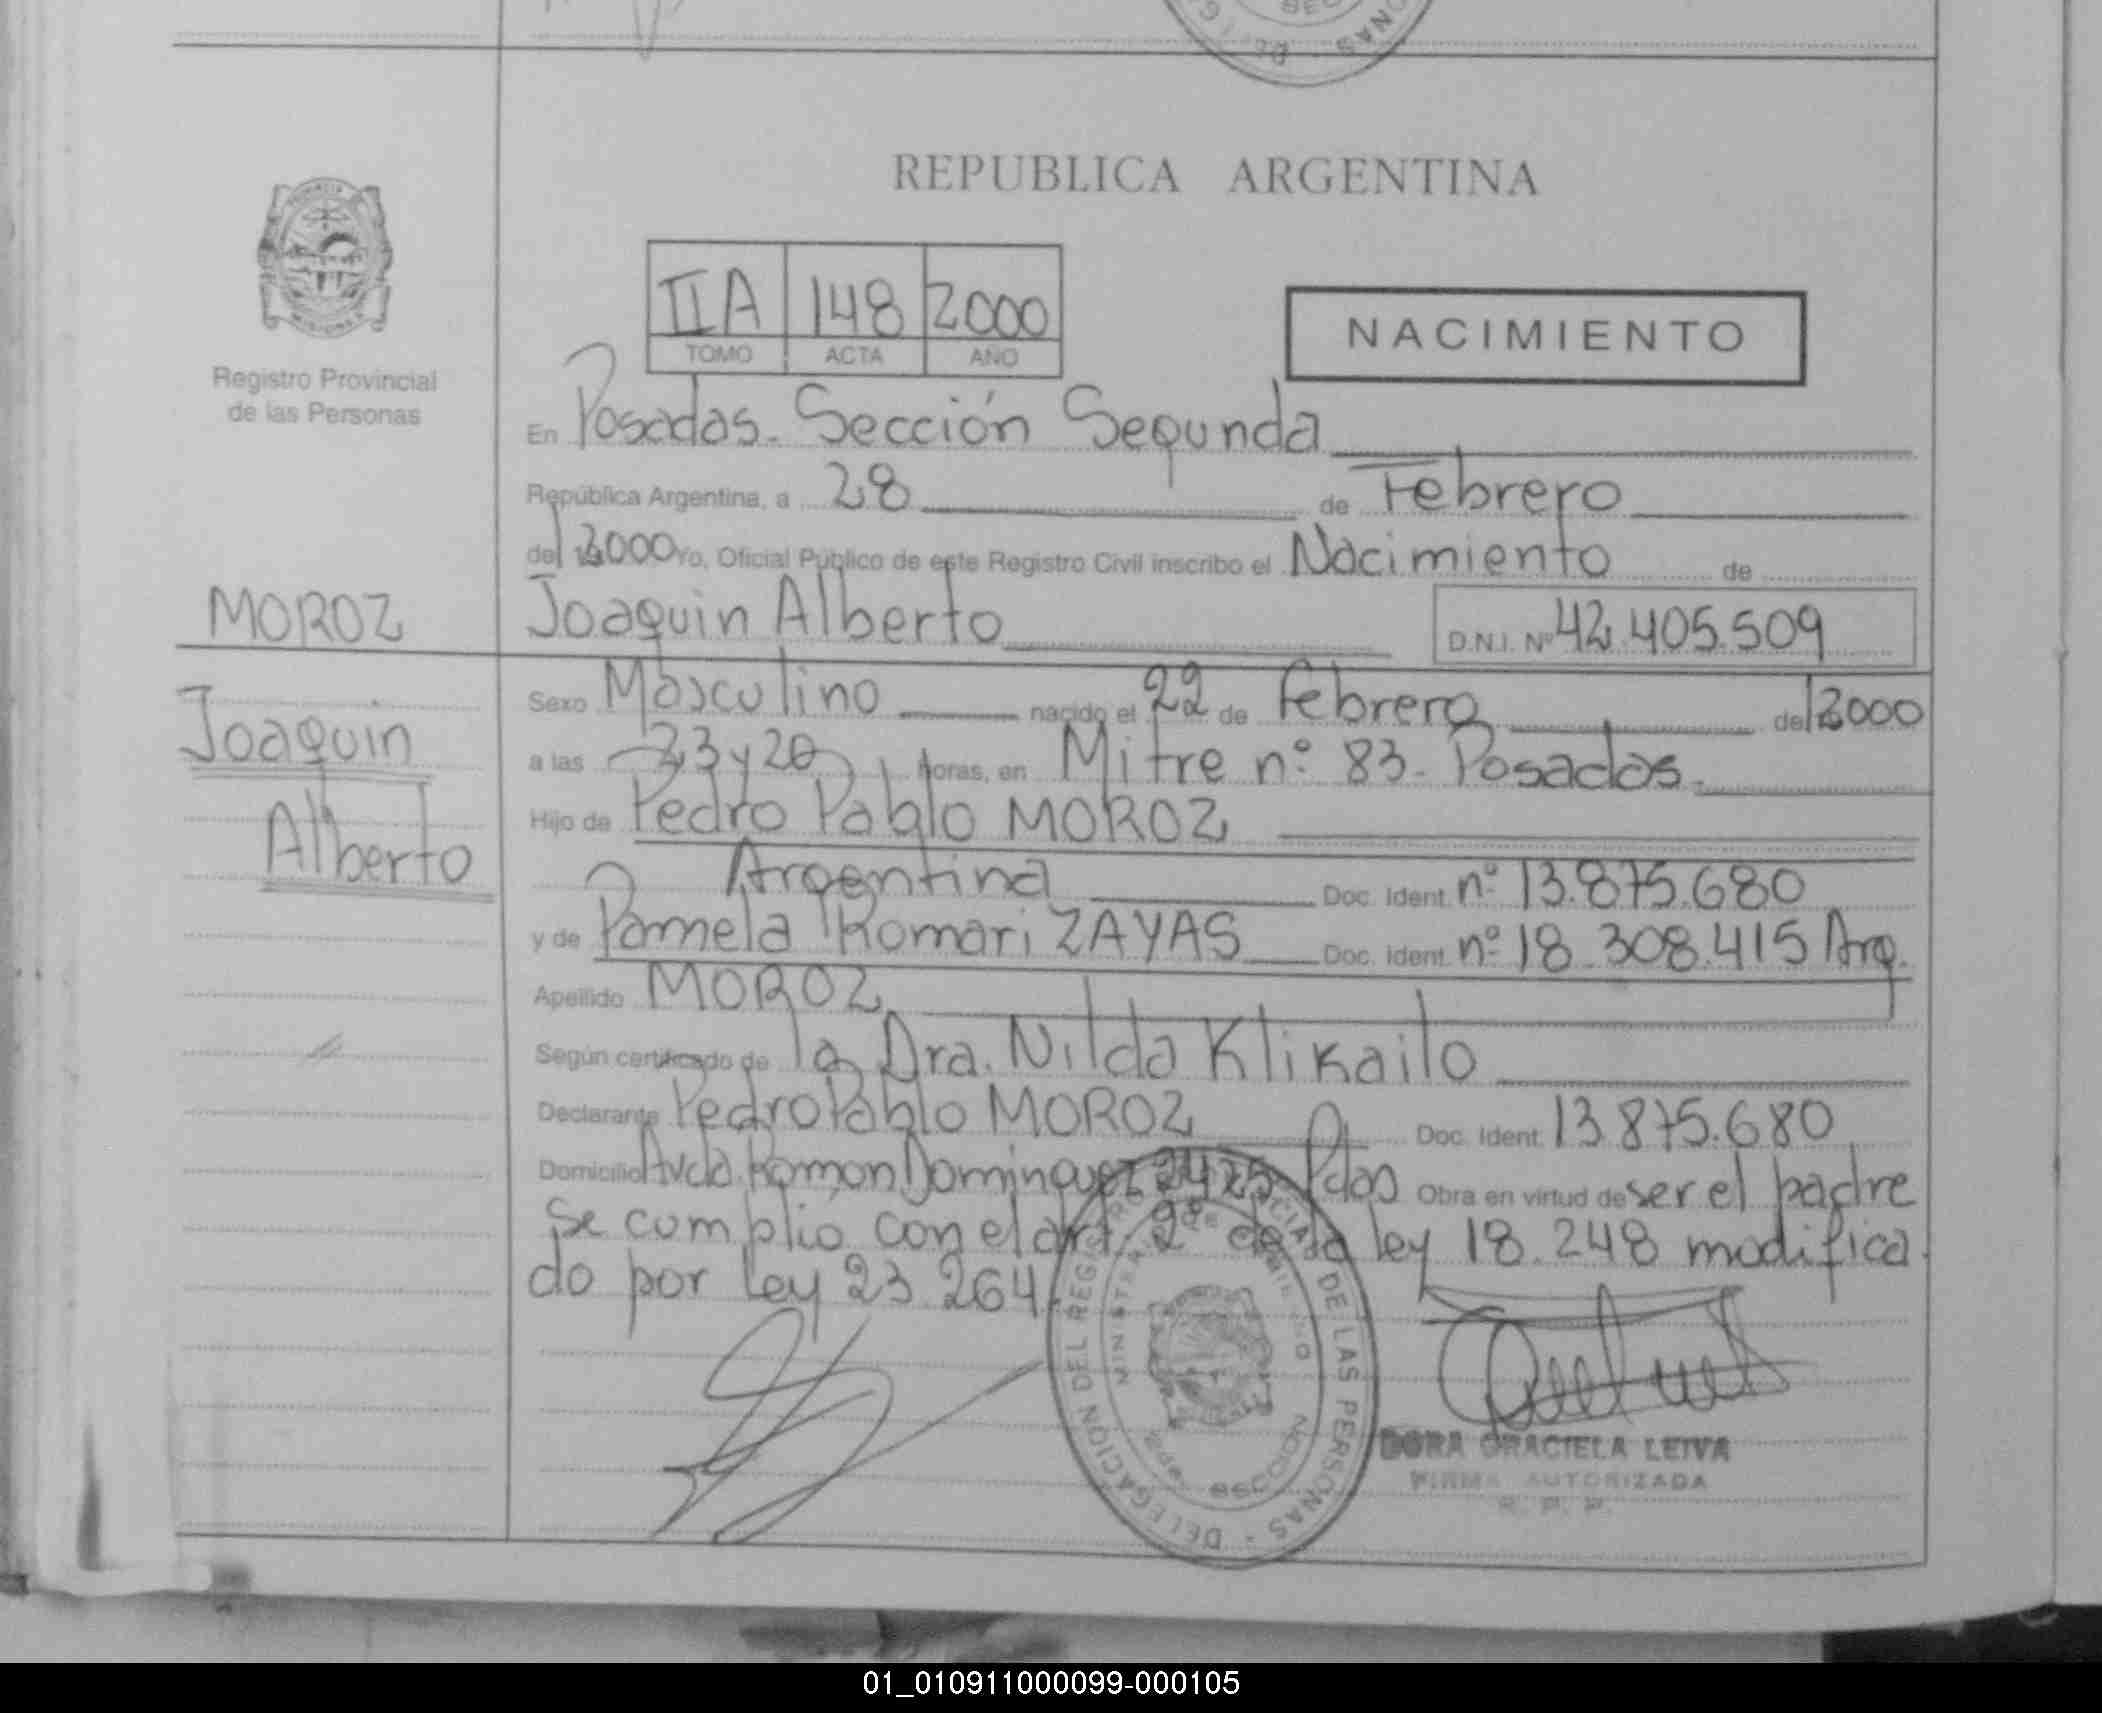 REPUBLICA ARGENTINA
IIA 148 2000
TOMO ACTA AÑO
NACIMIENTO
Registro Provincial
de las Personas
En Posadas. Sección Segunda
República Argentina, a 28 de Febrero
del 2000 Yo, Oficial Público de este Registro Civil inscribo el Nacimiento de
MOROZ
Joaquin Alberto D.N.I. Nº 42.405.509
Joaquin
Alberto
Sexo Masculino nacido el 22 de febrero del 2000
a las 23 y 20 horas, en Mitre nº 83. Posadas.
Hijo de Pedro Pablo MOROZ
Argentina Doc. Ident. nº 13.875.680
y de Pamela Romari ZAYAS Doc. Ident. nº 18.308.415 Arg.
Apellido MOROZ
Según certificado de la Dra. Nilda Klikailo
Declarante Pedro Pablo MOROZ Doc. Ident. 13.875.680
Domicilio Avda. Ramon Dominguez 2475 Pdas Obra en virtud de ser el padre
Se cumplió con el art. 2º de la ley 18.248 modifica
do por ley 23.264
DELEGACION DEL REGISTRO PROVINCIAL DE LAS PERSONAS
SECCION
DORA GRACIELA LEIVA
FIRMA AUTORIZADA
R. P. P.
01_010911000099-000105